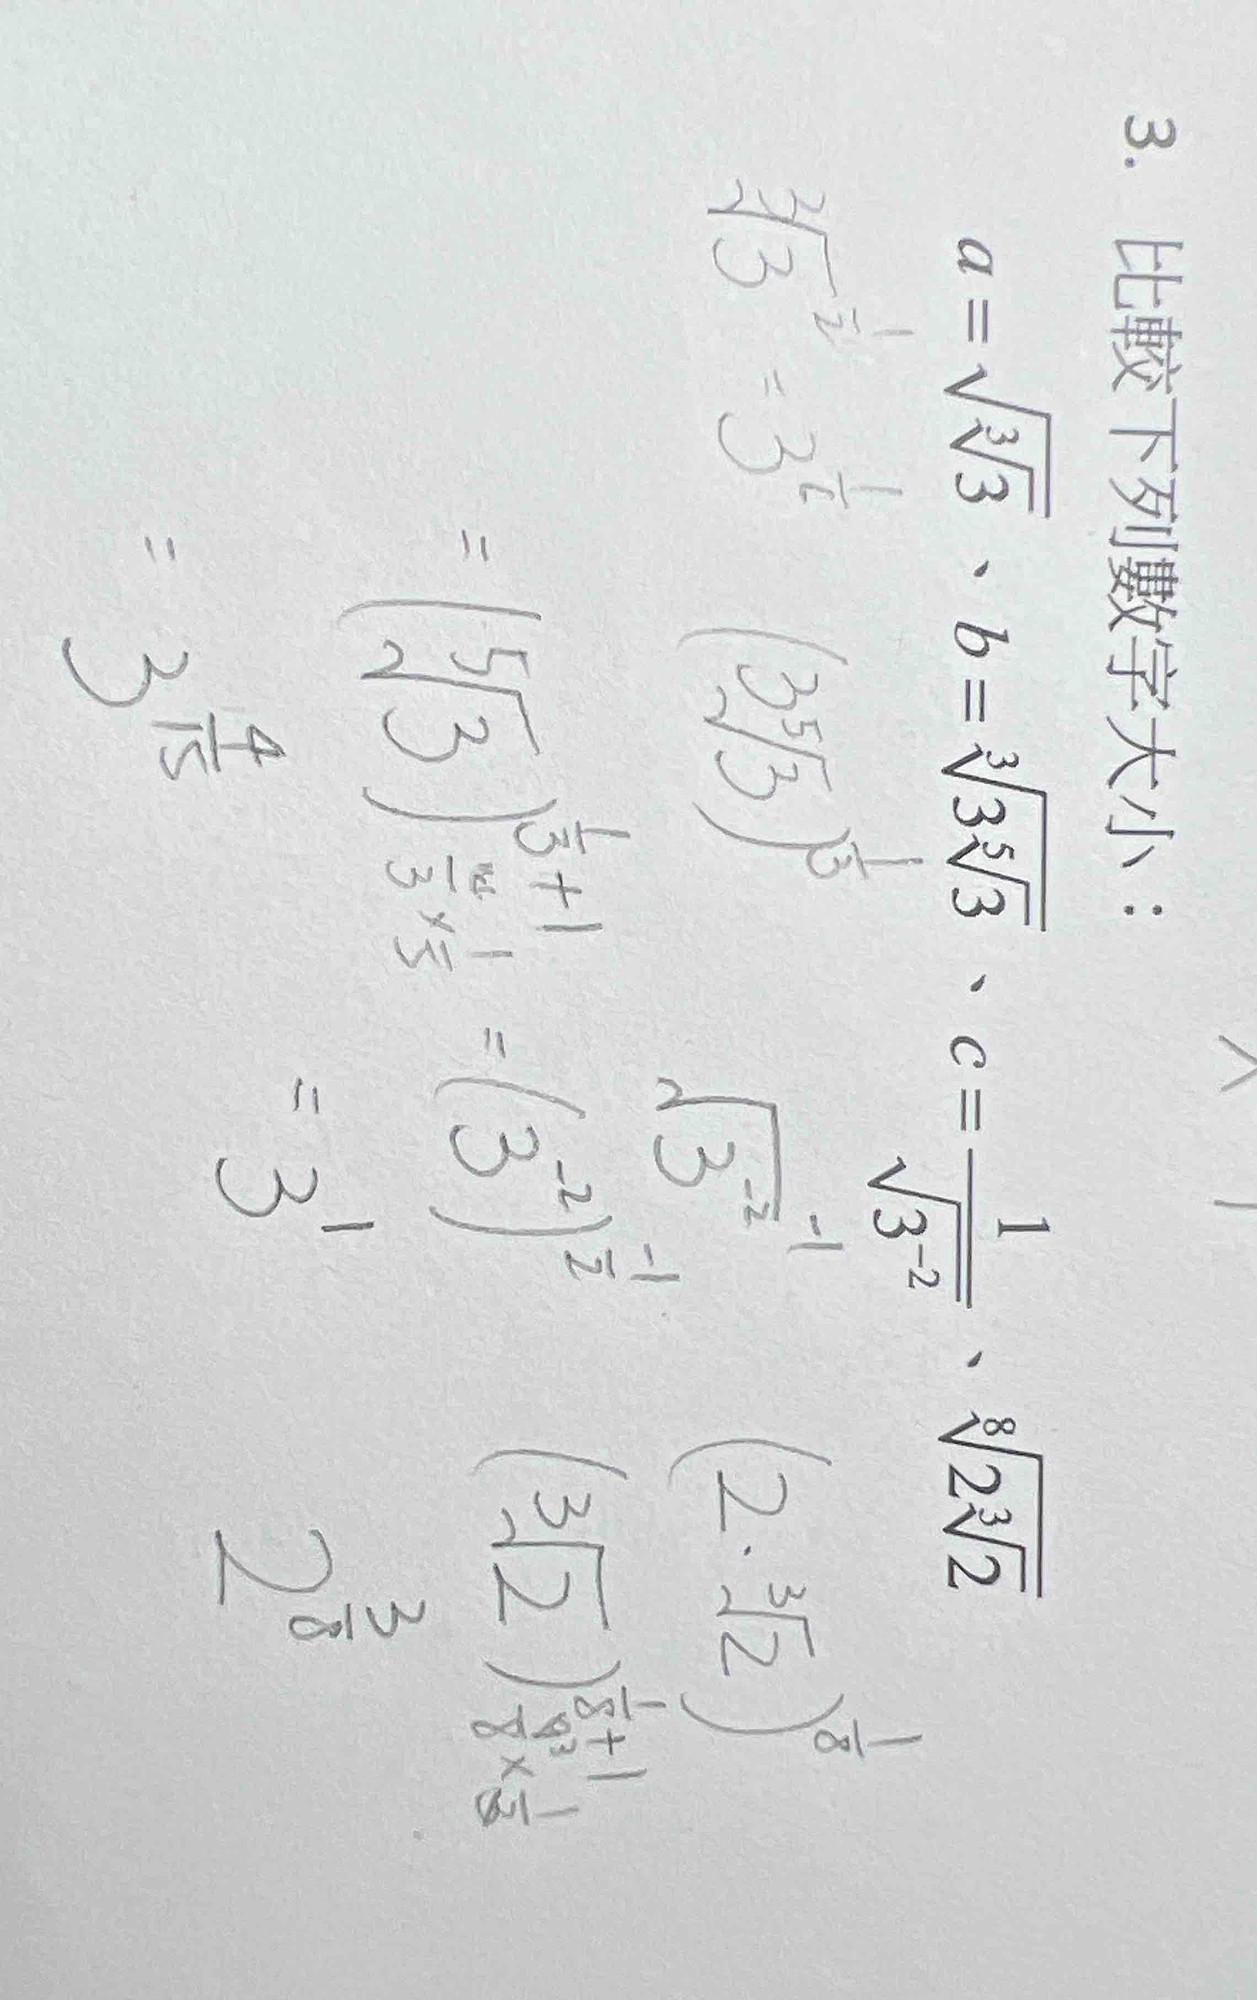 3. 比較下列數字大小：
a = √(∛3)、b = ∛(3⁵√3)、c = 1/√(3⁻²)、⁸√(2∛2)
∛3^(1/2) = 3^(1/6)
(3⁵√3)^(1/3)
= (⁵√3)^(1/3+1)
4/3 × 1/5
= 3^(4/15)
√(3⁻²)^(-1)
= (3⁻²)^(-1/2)
= 3¹
(2·∛2)^(1/8)
(∛2)^(1/8+1)
2^(3/8)